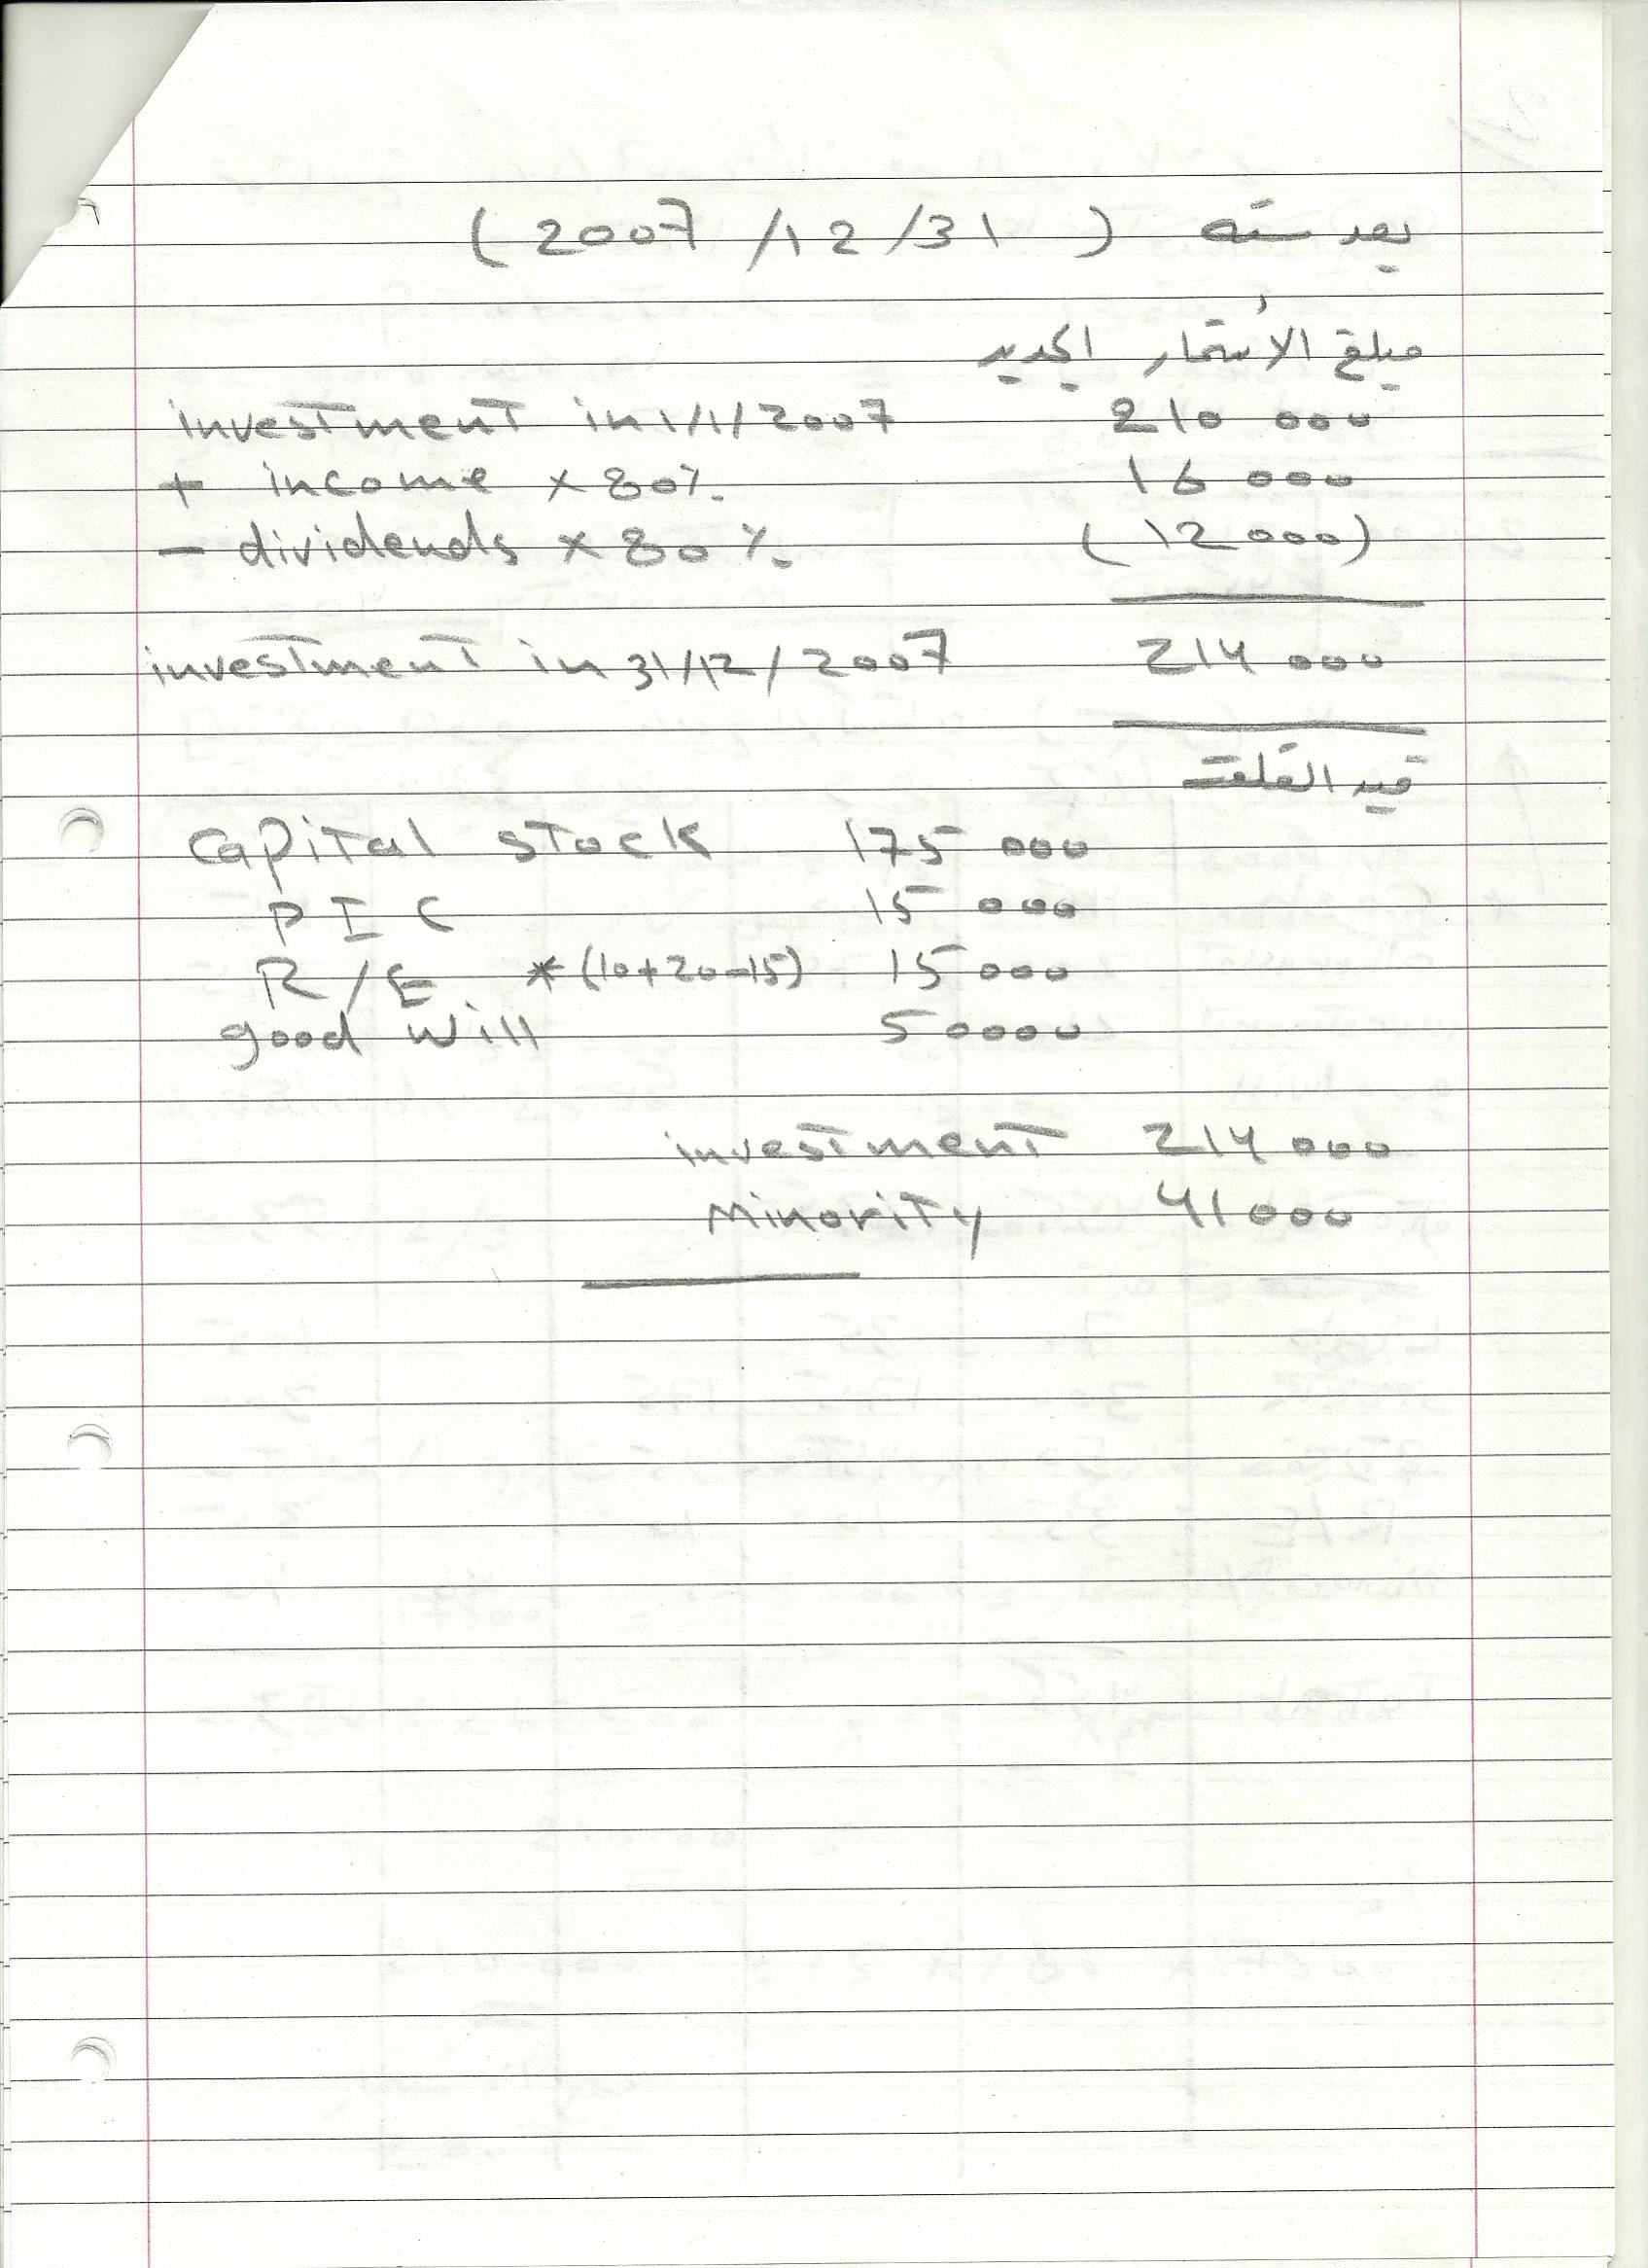 بعد سنه ( 2007 /12 /31 )
مبلغ الأستثمار الجديد
investment in 1/1/2007 210 000
+ income × 80%. 16 000
- dividends × 80 %. ( 12 000)
investment in 31/12/2007 214 000
قيد القلعت
Capital stock 175 000
P I C 15 000
R/E * (10+20-15) 15 000
good will 50000
investment 214 000
Minority 41000